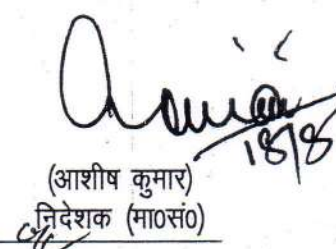 18/8
(आशीष कुमार)
निदेशक (मा0सं0)